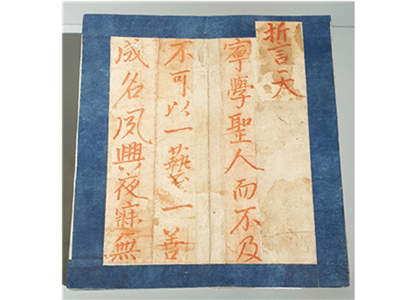 誓天
寧學聖人而不及
不可以一藝一善
成名夙興夜寐無